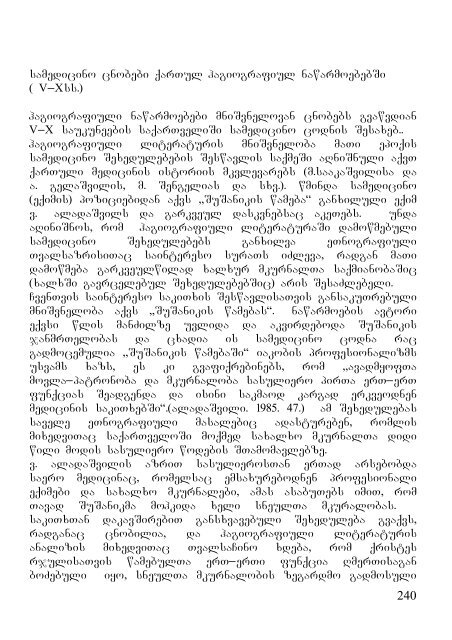 სამედიცინო ცნობები ქართულ ჰაგიოგრაფიულ ნაწარმოებებში
( V–Xსს.)
ჰაგიოგრაფიული ნაწარმოებები მნიშვნელოვან ცნობებს გვაწვდიან
V–X საუკუნეების საქართველიში სამედიცინო ცოდნის შესახებ..
ჰაგიოგრაფიული ლიტერატურის მნიშვნელობა მათი ეპოქის
სამედიცინო შეხედულებების შესწავლის საქმეში აღნიშნული აქვთ
ქართული მედიცინის ისტორიის მკვლევარებს (მ.სააკაშვილისა და
ა. გელაშვილის, მ. შენგელიას და სხვ.). წმინდა სამედიცინო
(ექიმის) პოზიციებიდან აქვს „შუშანიკის წამება“ განხილული ექიმ
ვ. ალადაშვილს და გარკვეულ დასკვნებსაც აკეთებს. უნდა
აღინიშნოს, რომ ჰაგიოგრაფიული ლიტერატურაში დამოწმებული
სამედიცინო შეხედულებებს განხილვა ეთნოგრაფიული
თვალსაზრისითაც საინტერესო სურათს იძლევა, რადგან მათი
დამოწმება გარკვეულწილად ხალხურ მკურნალთა საქმიანობაშიც
(ხალხში გავრცელებულ შეხედულებებშიც) არის შესაძლებელი.
ჩვენთვის საინტერესო საკითხის შესწავლისათვის განსაკუთრებული
მნიშვნელობა აქვს „შუშანიკის წამებას“. ნაწარმოების ავტორი
ექვსი წლის მანძილზე უვლიდა და აკვირდებოდა შუშანიკის
ჯანმრთელობას და ცხადია ის სამედიცინო ცოდნა რაც
გადმოცემულია „შუშანიკის წამებაში“ იაკობის პროფესიონალიზმს
უსვამს ხაზს, ეს კი გვაფიქრებინებს, რომ „ავადმყოფთა
მოვლა–პატრონობა და მკურნალობა სასულიერო პირთა ერთ–ერთ
ფუნქციას შეადგენდა და ისინი საკმაოდ კარგად ერკვეოდნენ
მედიცინის საკითხებში“.(ალადაშვილი. 1985. 47.) ამ შეხედულებას
საველე ეთნოგრაფიული მასალებიც ადასტურებენ, რომლის
მიხედვითაც საქართველოში მოქმედ სახალხო მკურნალთა დიდი
წილი მოდის სასულიერო წოდების შთამომავლებზე.
ვ. ალადაშვილის აზრით სასულიეროსთან ერთად არსებობდა
საერო მედიცინაც, რომელსაც ემსახურებოდნენ პროფესიონალი
ექიმები და სახალხო მკურნალები, ამას ასაბუთებს იმით, რომ
თავად შუშანიკმა მოჰკიდა ხელი სნეულთა მკურალობას.
საკითხთან დაკავშირებით განსხვავებული შეხედულება გვაქვს,
რადგანაც ცნობილია, და ჰაგიოგრაფიული ლიტერატურის
ანალიზის მიხედვითაც თვალსაჩინო ხდება, რომ ქრისტეს
რჯულისათვის წამებულთა ერთ–ერთი ფუნქცია ღმერთისაგან
ბოძებული იყო, სნეულთა მკურნალობის ზეგარდმო გადმოსული
240